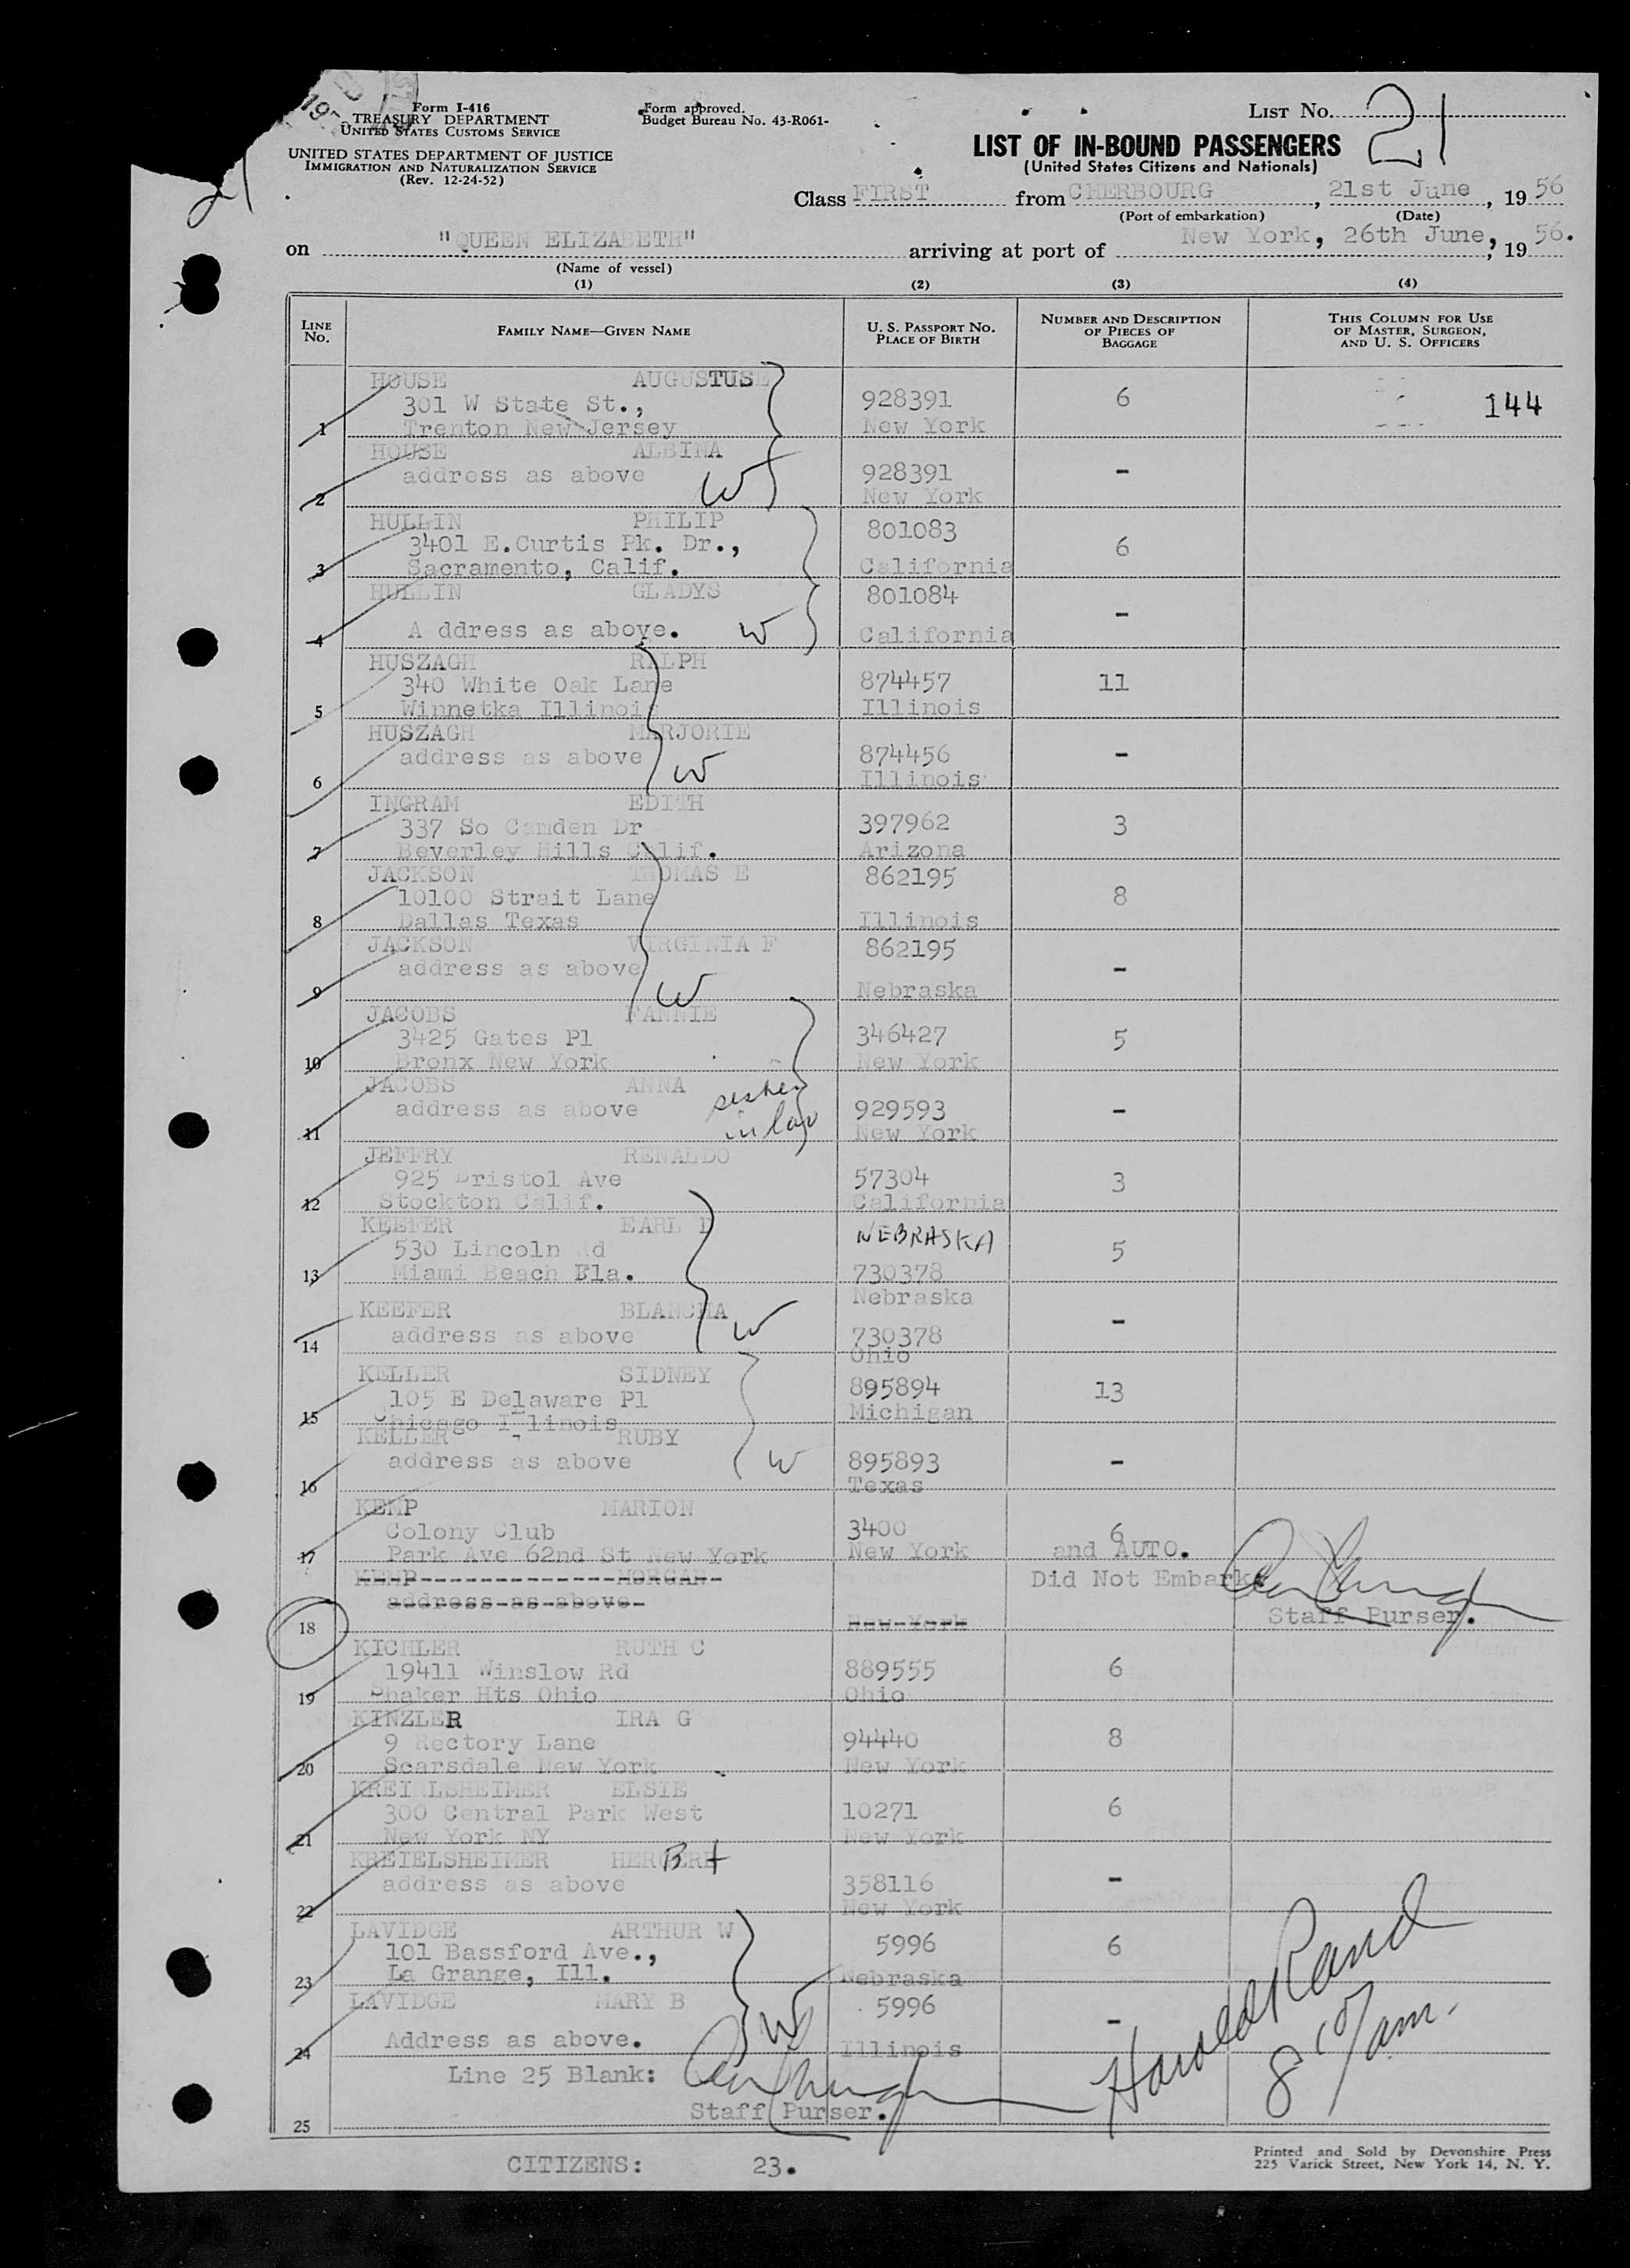 Form I-416
TREASURY DEPARTMENT
UNITED STATES CUSTOMS SERVICE
UNITED STATES DEPARTMENT OF JUSTICE
IMMIGRATION AND NATURALIZATION SERVICE
(Rev. 12-24-52)
Form approved.
Budget Bureau No. 43-R061-
LIST No. 21
LIST OF IN-BOUND PASSENGERS
(United States Citizens and Nationals)
Class FIRST from CHERBOURG, 21st June, 1956
(Port of embarkation) (Date)
on "QUEEN ELIZABETH" arriving at port of New York, 26th June, 1956.
(Name of vessel)
(1) (2) (3) (4)
LINE No. FAMILY NAME—GIVEN NAME U. S. PASSPORT No. PLACE OF BIRTH NUMBER AND DESCRIPTION OF PIECES OF BAGGAGE THIS COLUMN FOR USE OF MASTER, SURGEON, AND U. S. OFFICERS
HOUSE AUGUSTUS
301 W State St., 928391 6 144
1 Trenton New Jersey New York
HOUSE ALBINA
address as above W 928391 -
2 New York
HULLIN PHILIP 801083
3401 E.Curtis Pk. Dr., 6
3 Sacramento, Calif. California
HULLIN GLADYS 801084
4 A ddress as above. W California -
HUSZAGH RALPH
340 White Oak Lane 874457 11
5 Winnetka Illinois Illinois
HUSZAGH MARJORIE
address as above W 874456 -
6 Illinois
INGRAM EDITH
337 So Camden Dr 397962 3
7 Beverley Hills Calif. Arizona
JACKSON THOMAS E 862195
10100 Strait Lane 8
8 Dallas Texas Illinois
JACKSON VIRGINIA F 862195
address as above -
9 W Nebraska
JACOBS FANNIE
3425 Gates Pl 346427 5
10 Bronx New York New York
JACOBS ANNA sister
address as above 929593 -
11 in law New York
JEFFRY RENALDO
925 Bristol Ave 57304 3
12 Stockton Calif. California
KEEFER EARL NEBRASKA
530 Lincoln Rd 5
13 Miami Beach Fla. 730378
Nebraska
KEEFER BLANCHA W
14 address as above 730378 -
Ohio
KELLER SIDNEY
105 E Delaware Pl 895894 13
15 Chicago Illinois Michigan
KELLER RUBY
address as above W 895893 -
16 Texas
KEMP MARION
Colony Club 3400 6
17 Park Ave 62nd St New York New York and AUTO.
KEMP MORGAN Did Not Embark.
address-as-above-
18 New York Staff Purser.
KICHLER RUTH C
19411 Winslow Rd 889555 6
19 Shaker Hts Ohio Ohio
KINZLER IRA G
9 Rectory Lane 94440 8
20 Scarsdale New York New York
KREIELSHEIMER ELSIE
300 Central Park West 10271 6
21 New York NY New York
KREIELSHEIMER HERBERT
address as above 358116 -
22 New York
LAVIDGE ARTHUR W
101 Bassford Ave., 5996 6
23 La Grange, Ill. Nebraska
LAVIDGE MARY B 5996
24 Address as above. W Illinois -
Line 25 Blank: Harold Rand
Staff Purser.
25
CITIZENS: 23.
Printed and Sold by Devonshire Press
225 Varick Street, New York 14, N. Y.